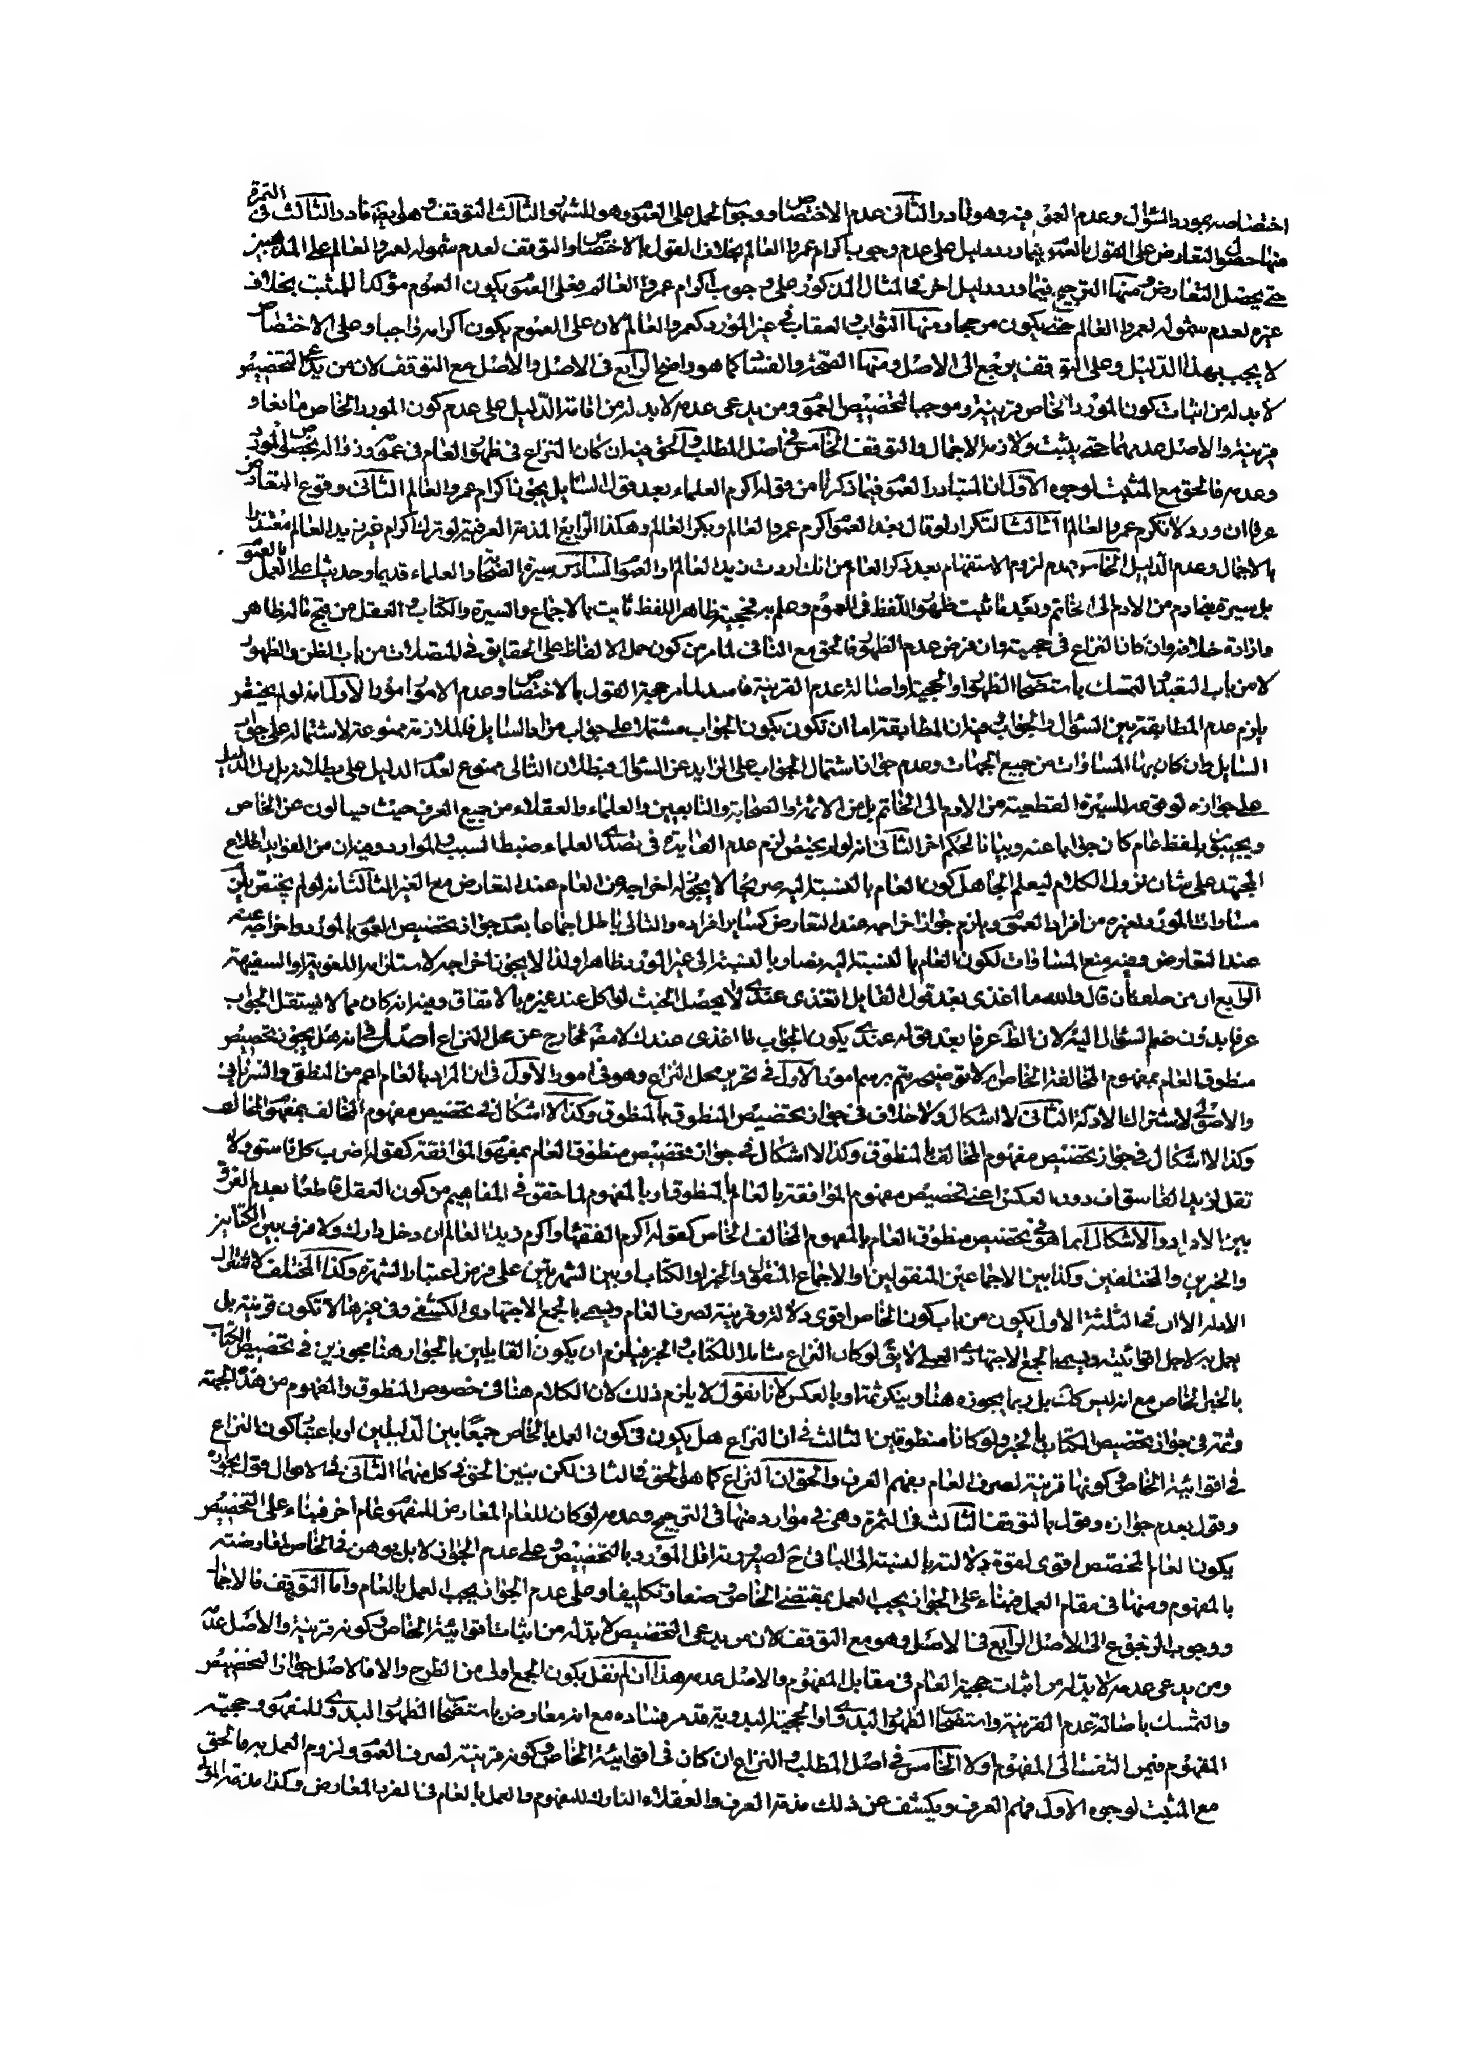 اختصاصه بمورد السؤال وعدم العموم فيه وهو نادر الثاني عدم الاختصاص ووجوب الحمل على العموم وهو للمشهور الثالث التوقف وهو ايضا نادر الثالث في الثمرة
منها حصول التعارض على القول بالعموم فيما ورد دليل على عدم وجوب اكرام عمرو العالم بخلاف القول بالاختصاص او التوقف لعدم شموله لعمرو العالم على المذهبين
حتى يحصل التعارض ومنها الترجيح فيما ورد دليل اخر في المثال المذكور على وجوب اكرام عمرو العالم فعلى العموم يكون العموم مؤكدا للمثبت بخلاف
غيره لعدم شموله لعمرو العالم حتى يكون مرجحا ومنها الثواب والعقاب في غير المورد كعمرو العالم لان على العموم يكون اكرامه واجبا وعلى الاختصاص
لا يجب بهذا الدليل وعلى التوقف يرجع الى الاصل ومنها الصحة والفساد كما هو واضح الرابع في الاصل والاصل مع التوقف لان من يدعى التخصيص
لا بد له من اثبات كون المورد الخاص قرينة وموجبا لتخصيص العموم ومن يدعى عدمه لا بد له من اقامة الدليل على عدم كون المورد الخاص مانعا و
قرينة والاصل عدمهما حتى يثبت ولازمه الاجمال والتوقف الخامس في اصل المطلب والحق فيه ان كان النزاع في ظهور العام في عموم وذو اله بخصوص المورد
وعدمه فالحق مع المثبت لوجوه الاول ان المتبادر العموم فيما ذكرنا من قوله اكرم العلماء بعد قول السائل يجوز اكرام عمرو العالم الثاني وقوع التعارض
عرفا ان ورد لا تكرم عمرو العالم الثالث التكرار لو قال بعد العموم اكرم عمرو العالم وبكر العالم وهكذا الرابع المذمة العرفية لو ترك اكرام غير زيد العالم معتذرا
بالاجمال وعدم الدليل الخامس عدم لزوم الاستفهام بعد ذكر العام من انك اردت زيد العالم او العموم السادس سيرة الصحابة والعلماء قديما وحديثا على العمل بالعموم
بل سيرة بني ادم من الادم الى الخاتم وبعد ما ثبت ظهور اللفظ في العموم وعلم به فحجية ظاهر اللفظ ثابت بالاجماع والسيرة والكتاب والعقل من قبح ما له ظاهر
وارادة خلافه وان كان النزاع في حجيته وان فرض عدم الظهور فالحق مع الثاني لما مر من كون حمل الالفاظ على الحقايق في المتصلات من باب الظن والظهور
لا من باب التعبد والتمسك باستصحاب الظهور او الحجية او اصالة عدم القرينة فاسد لما مر حجة القول بالاختصاص وعدم الاموا امور الاول انه لو لم يختص
يلزم عدم المطابقة بين السؤال والجواب وفيه ان المطابقة اما ان تكون بكون الجواب مشتملا على جواب مراد السايل فالملازمة ممنوعة لاشتماله على جواب
السايل وان كان بها المساوات من جميع الجهات وعدم جواز اشتمال الجواب على الزايد عن السؤال فبطلان التالي ممنوع لعدم الدليل على بطلانه بل دل الدليل
على جوازه لوقوعه للسيرة القطعية من الادم الى الخاتم بل من الائمة والصحابة والتابعين والعلماء والعقلاء من جميع العرف حيث يسالون عن الخاص
ويجيبون بلفظ عام كان جوابا عنه وبيانا لحكم اخر الثاني انه لو لم يختص لزم عدم الفايدة في تصدى العلماء ضبط السبب والموارد وفيه ان من الفوايد اطلاع
المجتهد على شان نزول الكلام ليعلم الجاهل كون العام بالنسبة اليه صريحا لا يجوز له اخراجه عن العام عند التعارض مع الغير الثالث انه لو لم يختص يلزم
مساوات المورد لغيره من افراد العموم ويلزم جواز اخراجه عند التعارض كساير افراده والتالي باطل اجماعا بعد جواز تخصيص العموم بالمورد واخراجه عنه
عند التعارض وفيه منع المساوات لكون العام بالنسبة اليه نصا وبالنسبة الى غير المورد ظاهرا ولذا لا يجوز اخراجه لاستلزامه اللغوية او السفيهة
الرابع ان من حلف بأن قال والله ما اغذى بعد قول القايل اتغذى عندى لا يحصل الحنث لو اكل عند غيره بالاتفاق وفيه انه كان مما لا يستقل الجواب
عرفا بدون ضم السؤال اليه لان الظ عرفا بعد قوله عندى يكون الجواب ما اغذى عندك لا مطلقا فخارج عن محل النزاع اصل في انه هل يجوز تخصيص
منطوق العام بمفهوم المخالفة الخاص ام لا توضيحه يتم برسم امور الاول في تحرير محل النزاع وهو في امور الاول في ان المراد بالعام اعم من المنطقي والشرائي
والاصولي لاشتراك الادلة الثاني لا اشكال ولا خلاف في جواز تخصيص المنطوق بالمنطوق وكذا لا اشكال في تخصيص مفهوم المخالف بمفهوم المخالف
وكذا لا اشكال في جواز تخصيص مفهوم المخالف بالمنطوق وكذا لا اشكال في جواز تخصيص منطوق العام بمفهوم الموافقة كقوله اضرب كل فاسق ولا
تقل لزيد الفاسق اف دون العكس اعني تخصيص مفهوم الموافقة بالعام بالمنطوق او بالمفهوم لما حقق في المفاهيم من كون العقل قاطعا بعدم الفرق
بين الافراد والاشكال انما هو في تخصيص منطوق العام بالمفهوم المخالف الخاص كقوله اكرم الفقهاء واكرم زيد العالم ان دخل دارك ولا فرق بين الكتابين
والخبرين والمختلفين وكذا بين الاجماعين المنقولين او الاجماع المنقول والخبر او الكتاب او بين الشهرتين على فرض اعتبار الشهرة وكذا المختلف لاشتراك
الادلة الا ان في الثلثة الاول يكون من باب كون الخاص اقوى دلالة وقرينة لصرف العام ويسمى بالجمع الاجتهادى الكشفى وفي غيرها لا تكون قرينة بل
يعمل به لاجل اقوائيته ويسمى بالجمع الاجتهادى العملى لا يق لو كان النزاع شاملا للكتاب والخبر فيلزم ان يكون القايلين بالجواز هنا مجوزين في تخصيص الكتاب
بالخبر الخاص مع انه ليس كك بل ربما يجوزه هنا وينكر ثمة او بالعكس لانا نقول لا يلزم ذلك لان الكلام هنا في خصوص المنطوق والمفهوم من هذه الجهة
وثمة في جواز تخصيص الكتاب بالخبر ولو كانا منطوقين الثالث في ان النزاع هل يكون في كون العمل بالخاص جمعا بين الدليلين او باعتبار كون النزاع
في اقوائية الخاص وكونها قرينة لصرف العام بفهم العرف والحق ان النزاع كما هو الحق في الثاني لكن نبين الحق في كل منهما الثاني في الاقوال قول بجوازه
وقول بعدم جوازه وقول بالتوقف الثالث في الثمرة وهي في موارد منها في الترجيح وعدمه لو كان للعام المعارض للمفهوم عام اخر فبناء على التخصيص
يكون العام المخصص اقوى لقوة دلالته بالنسبة الى الباقي ح لصيرورته اقل المورد بالتخصيص وعلى عدم الجواز لا بل يوهن في الخاص لمعارضته
بالمفهوم ومنها في مقام العمل فبناء على الجواز يجب العمل بمقتضى الخاص وضعا وتكليفا وعلى عدم الجواز يجب العمل بالعام واما التوقف فالاجمال
ووجوب الرجوع الى الاصل الرابع في الاصل وهو مع التوقف لان من يدعى التخصيص لا بد له من اثبات اقوائية الخاص وكونه قرينة والاصل عدمه
ومن يدعى عدمه لا بد له من اثبات حجية العام في مقابل المفهوم والاصل عدمه هذا ان لم نقل بكون الجمع اولى من الطرح والا فالاصل جواز التخصيص
والتمسك باصالة عدم القرينة واستصحاب الظهور البدوى او الحجية البدوية قد مر فساده مع انه معارض باستصحاب الظهور البدوى للمفهوم وحجية
المفهوم فيمن التفت الى المفهوم اولا الخامس في اصل المطلب والنزاع ان كان في اقوائية الخاص وكونه قرينة لصرف العموم ولزوم العمل به فالحق
مع المثبت لوجوه الاول فهم العرف ويكشف عن ذلك مذمة العرف والعقلاء التارك للمفهوم والعمل بالعام في الفرد المعارض وكذا مذمة المولى